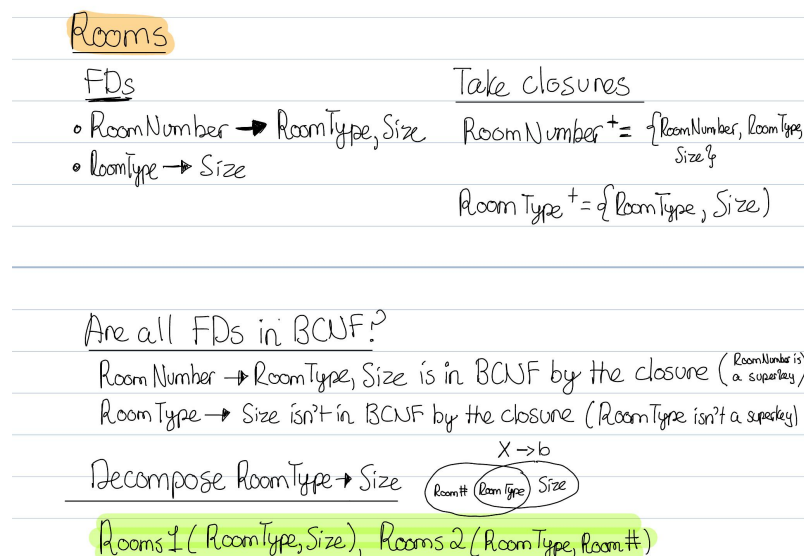 Rooms
FDs
• RoomNumber → RoomType, Size
• RoomType → Size
Take closures
RoomNumber⁺ = {RoomNumber, RoomType,
Size}
RoomType⁺ = {RoomType, Size)
Are all FDs in BCNF?
RoomNumber → RoomType, Size is in BCNF by the closure (RoomNumber is
a superkey)
RoomType → Size isn't in BCNF by the closure (RoomType isn't a superkey)
X → b
Decompose RoomType → Size
Room# RoomType Size
Rooms1(RoomType, Size), Rooms2(RoomType, Room#)